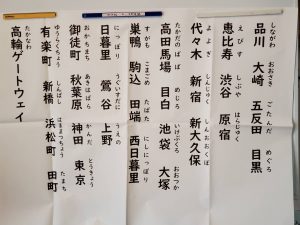 しながわ おおさき ごたんだ めぐろ
品川 大崎 五反田 目黒
えびす しぶや はらじゅく
恵比寿 渋谷 原宿
よよぎ しんじゅく しんおおくぼ
代々木 新宿 新大久保
たかだのばば めじろ いけぶくろ おおつか
高田馬場 目白 池袋 大塚
すがも こまごめ たばた にしにっぽり
巣鴨 駒込 田端 西日暮里
にっぽり うぐいすだに うえの
日暮里 鶯谷 上野
おかちまち あきはばら かんだ とうきょう
御徒町 秋葉原 神田 東京
ゆうらくちょう しんばし はままつちょう たまち
有楽町 新橋 浜松町 田町
たかなわ
高輪ゲートウェイ